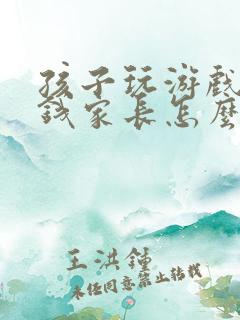 孩子玩游戏
钱家长怎麽
王洪钟
未经同意禁止转载